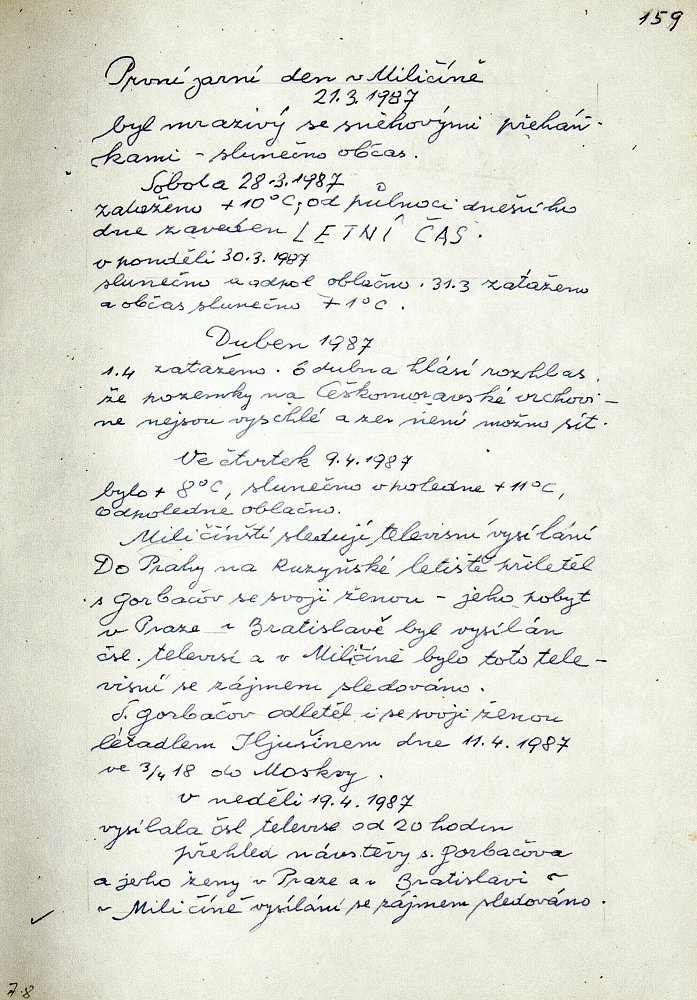 159
První jarní den v Miličíně
21.3.1987
byl mrazivý se sněhovými přeháň-
kami - slunečno občas.
Sobota 28.3.1987
zataženo +10°C, od půlnoci dnešního
dne zaveden LETNÍ ČAS.
v pondělí 30.3.1987
slunečno a odpol oblačno. 31.3 zataženo
a občas slunečno +1°C.
Duben 1987
1.4 zataženo. 6 dubna hlásí rozhlas,
že pozemky na Českomoravské vrchovi-
ně nejsou vyschlé a není možno sít.
Ve čtvrtek 9.4.1987
bylo + 8°C, slunečno v poledne +11°C,
odpoledne oblačno.
Miličínští sledují televisní vysílání
Do Prahy na Ruzyňské letiště přiletěl
s Gorbačov se svojí ženou - jeho pobyt
v Praze v Bratislavě byl vysílán
čsl. televisí a v Miličíně bylo toto tele-
visní se zájmem sledováno.
S. Gorbačov odletěl i se svojí ženou
letadlem Iljušinem dne 11.4.1987
ve 3/4 18 do Moskvy.
v neděli 19.4.1987
vysílala čsl televise od 20 hodin
přehled návštěvy s. Gorbačova
a jeho ženy v Praze a v Bratislavi
v Miličíně vysílání se zájmem sledováno.
7.8